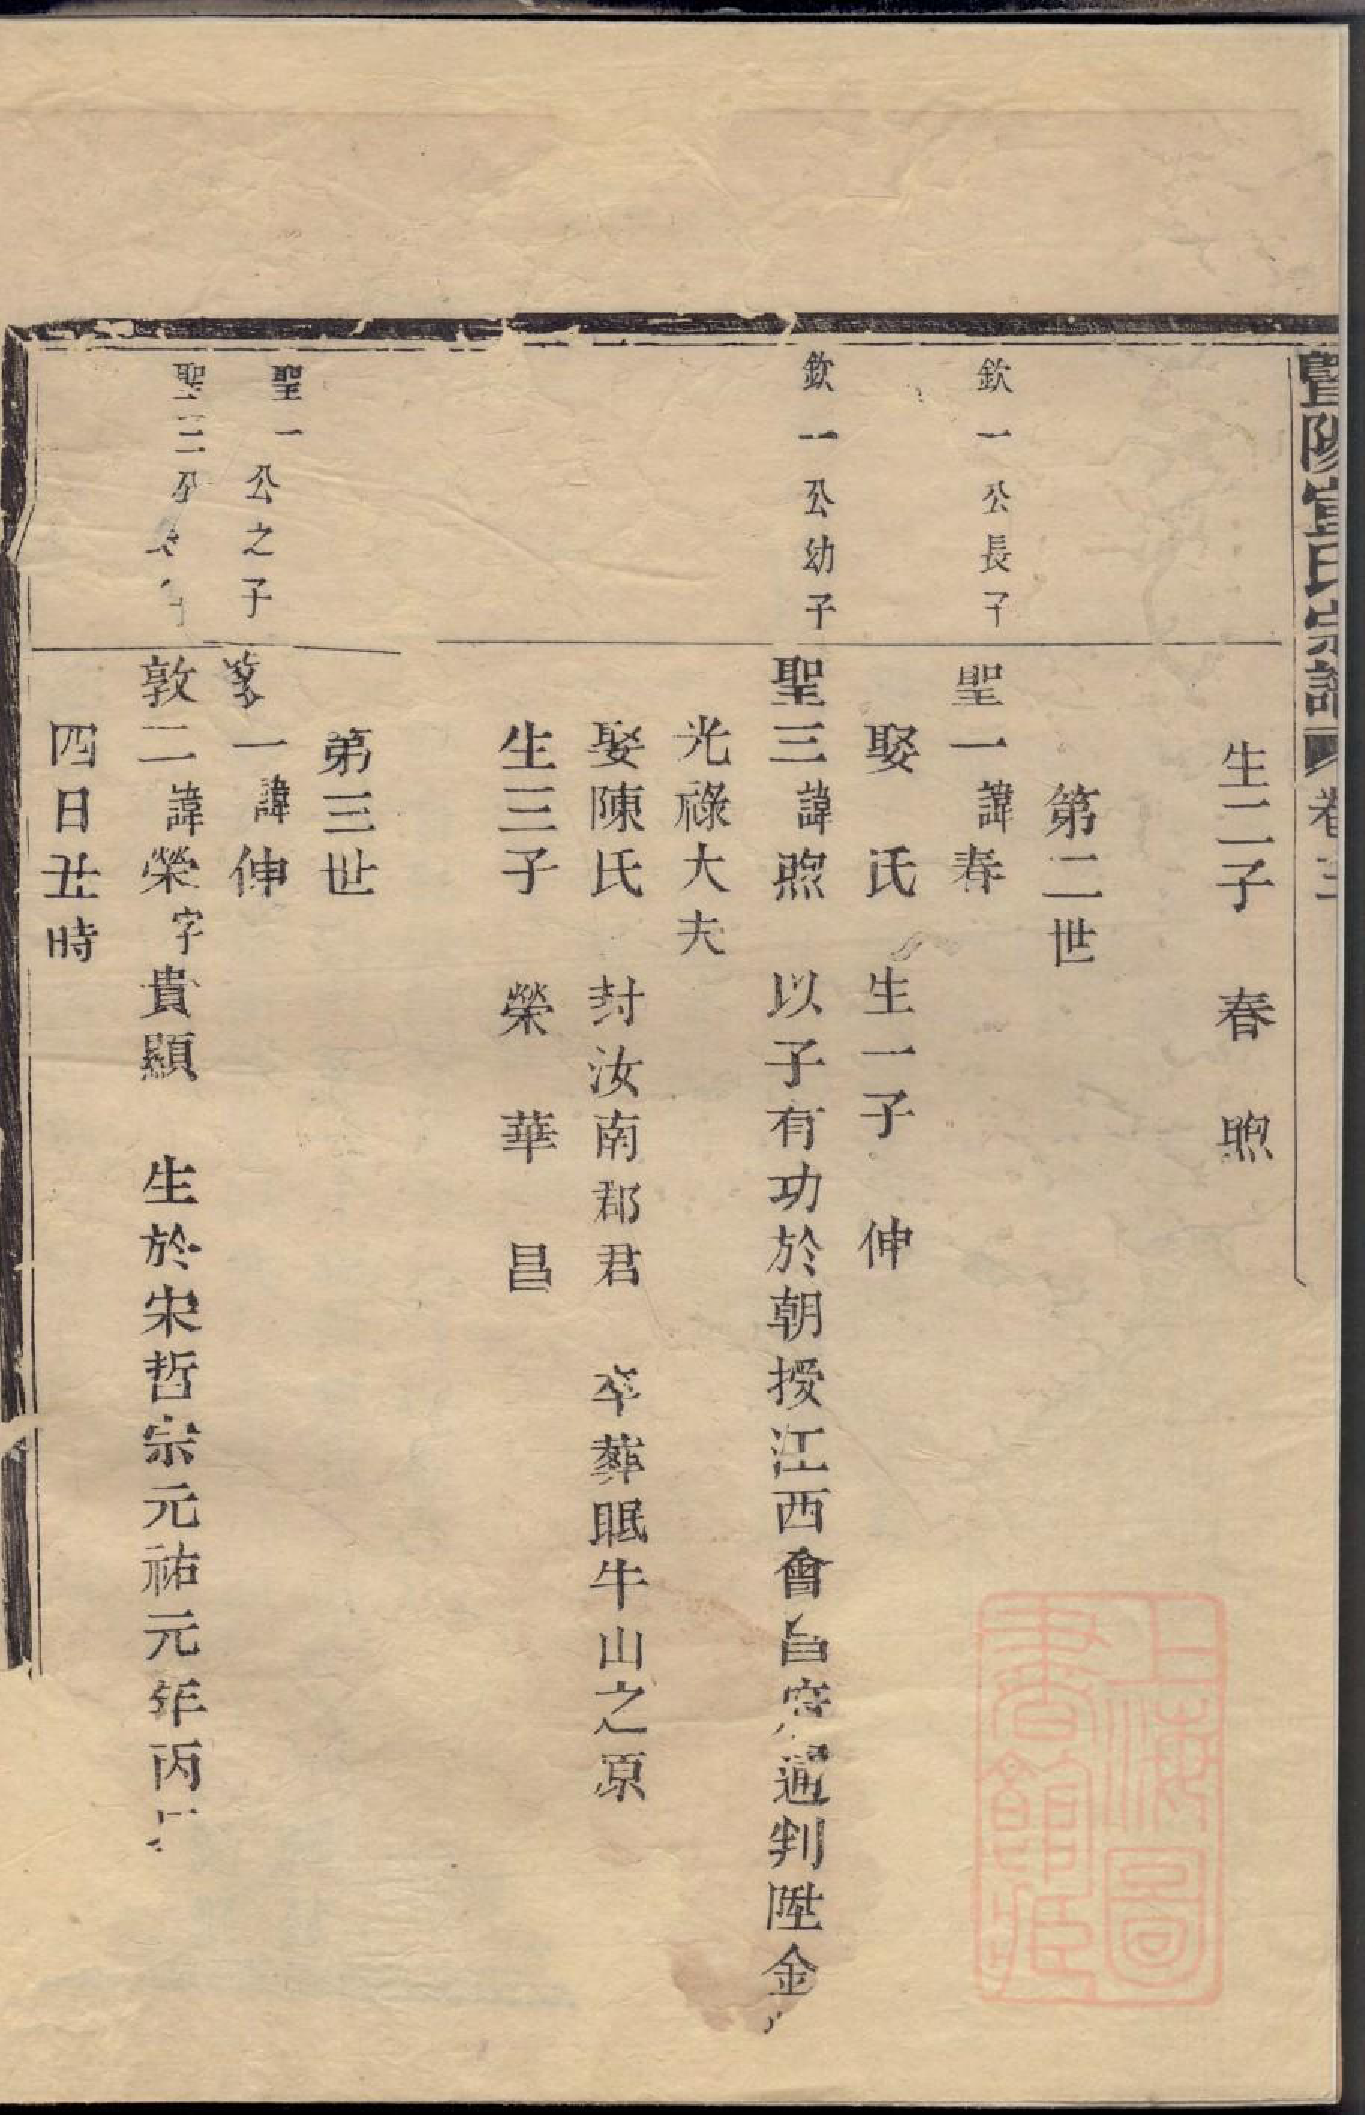 暨陽宣氏宗譜 卷三
生二子 春 煦
第二世
欽一公長子
聖一諱春
娶 氏 生一子 伸
欽一公幼子
聖三諱煦 以子有功於朝授江西會昌 通判陞金
光祿大夫
娶陳氏 封汝南郡君 卒葬眠牛山之原
生三子 榮 華 昌
第三世
聖一公之子
一諱伸
聖三公 子
敦二諱榮字貴顯 生於宋哲宗元祐元年丙
四日丑時
上海圖
書館藏